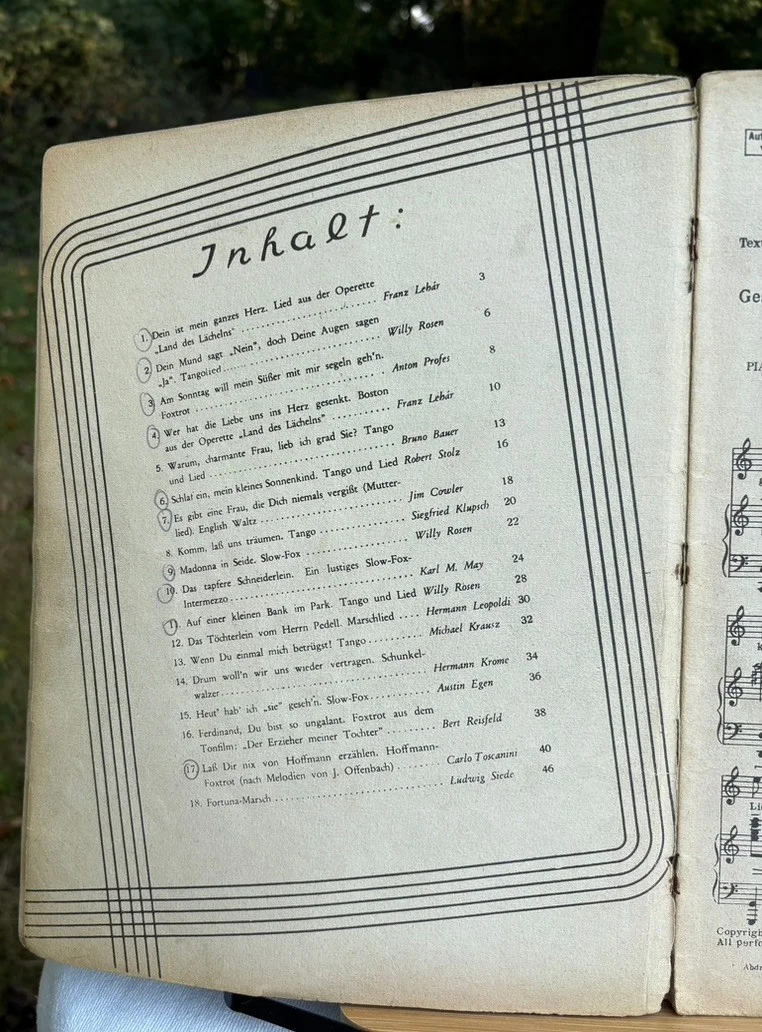 Inhalt:
1. Dein ist mein ganzes Herz. Lied aus der Operette
„Land des Lächelns“ .......... Franz Lehár 3
2. Dein Mund sagt „Nein“, doch Deine Augen sagen
„Ja“. Tangolied .......... Willy Rosen 6
3. Am Sonntag will mein Süßer mit mir segeln geh'n.
Foxtrot .......... Anton Profes 8
4. Wer hat die Liebe uns ins Herz gesenkt. Boston
aus der Operette „Land des Lächelns“ .......... Franz Lehár 10
5. Warum, charmante Frau, lieb ich grad Sie? Tango
und Lied .......... Bruno Bauer 13
6. Schlaf ein, mein kleines Sonnenkind. Tango und Lied Robert Stolz 16
7. Es gibt eine Frau, die Dich niemals vergißt (Mutter-
lied). English Waltz .......... Jim Cowler 18
8. Komm, laß uns träumen. Tango .......... Siegfried Klupsch 20
9. Madonna in Seide. Slow-Fox .......... Willy Rosen 22
10. Das tapfere Schneiderlein. Ein lustiges Slow-Fox-
Intermezzo .......... Karl M. May 24
11. Auf einer kleinen Bank im Park. Tango und Lied Willy Rosen 28
12. Das Töchterlein vom Herrn Pedell. Marschlied .... Hermann Leopoldi 30
13. Wenn Du einmal mich betrügst! Tango .......... Michael Krausz 32
14. Drum woll'n wir uns wieder vertragen. Schunkel-
walzer .......... Hermann Krome 34
15. Heut' hab' ich „sie“ geseh'n. Slow-Fox .......... Austin Egen 36
16. Ferdinand, Du bist so ungalant. Foxtrot aus dem
Tonfilm: „Der Erzieher meiner Tochter“ .......... Bert Reisfeld 38
17. Laß Dir nix von Hoffmann erzählen. Hoffmann-
Foxtrot (nach Melodien von J. Offenbach) .......... Carlo Toscanini 40
18. Fortuna-Marsch .......... Ludwig Siede 46
Copyrigh
All perfo
Abdr